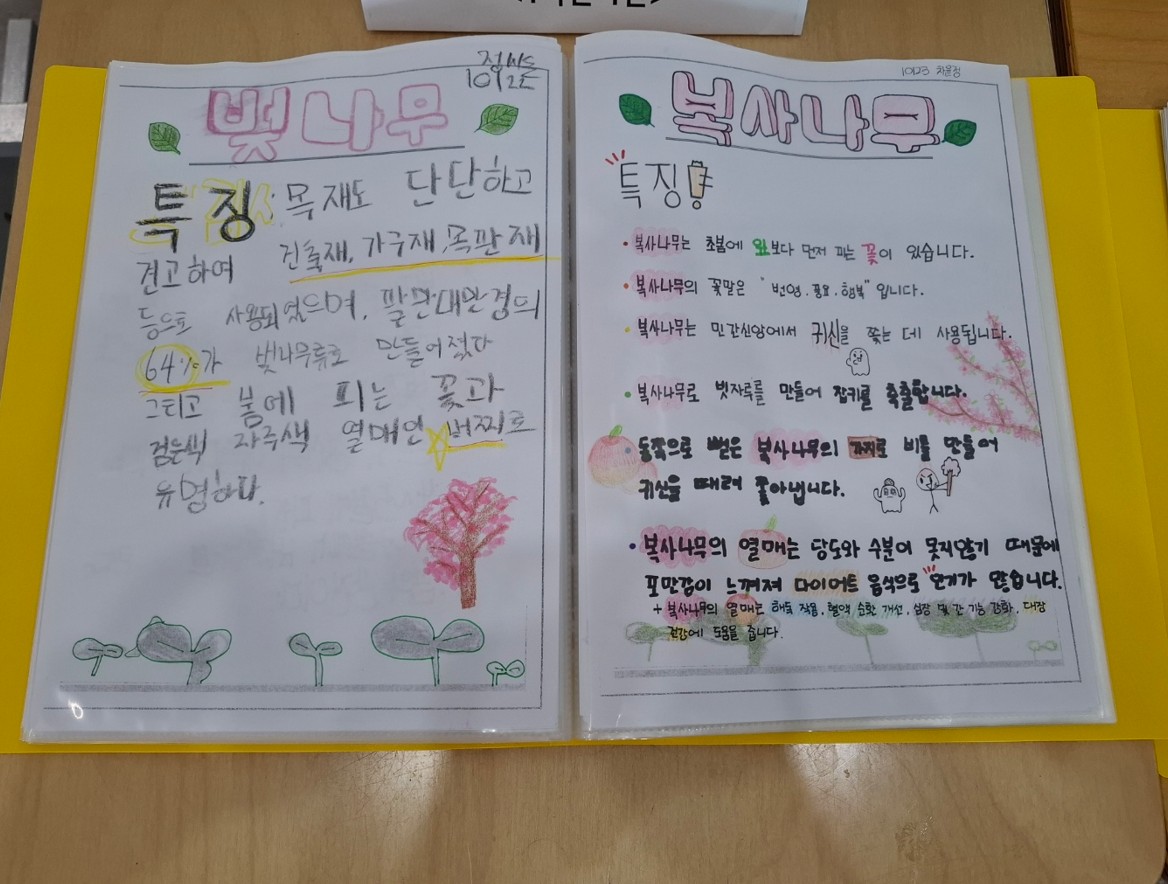 벚나무
특징: 목재도 단단하고
견고하여 건축재, 가구재, 목판재
등으로 사용되었으며, 팔만대만경의
64%가 벚나무류로 만들어졌다
그리고 봄에 피는 꽃과
검은색 자주색 열매인 버찌로
유명하다.
10123 차윤정
복사나무
특징
• 복사나무는 초봄에 잎보다 먼저 피는 꽃이 있습니다.
• 복사나무의 꽃말은 "번영, 풍요, 행복" 입니다.
• 복사나무는 민간신앙에서 귀신을 쫓는 데 사용됩니다.
• 복사나무로 빗자루를 만들어 잡귀를 축출합니다.
• 동쪽으로 뻗은 복사나무의 가지로 비를 만들어
귀신을 때려 쫓아냅니다.
• 복사나무의 열매는 당도와 수분이 못지않기 때문에
포만감이 느껴져 다이어트 음식으로 인기가 많습니다.
+ 복사나무의 열매는 해독 작용, 혈액 순환 개선, 심장 및 간 기능 강화, 대장
건강에 도움을 줍니다.